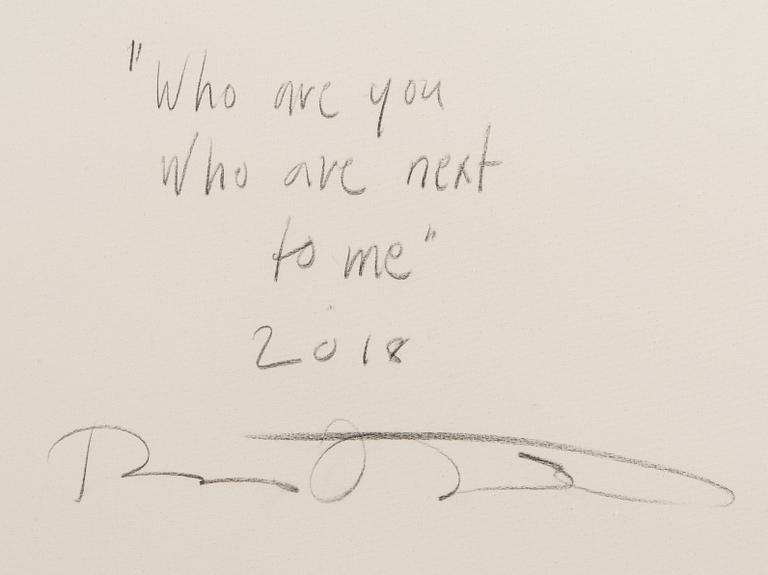 "Who are you
Who are next
to me"
2018